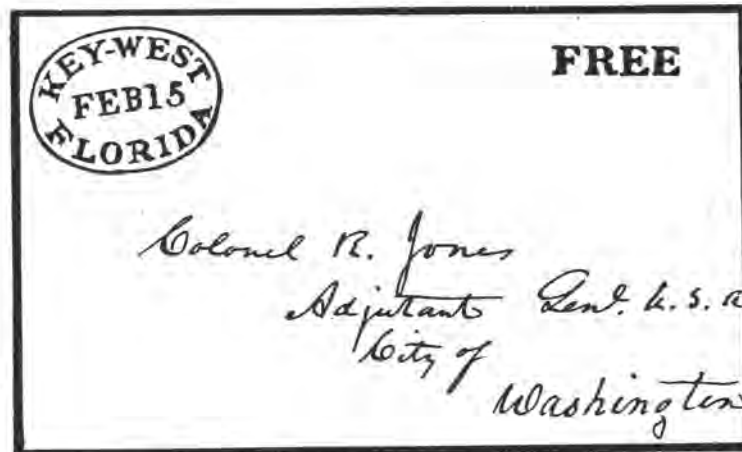 KEY-WEST
FEB 15
FLORIDA
FREE
Colonel R. Jones
Adjutant Genl. U.S.A
City of
Washington